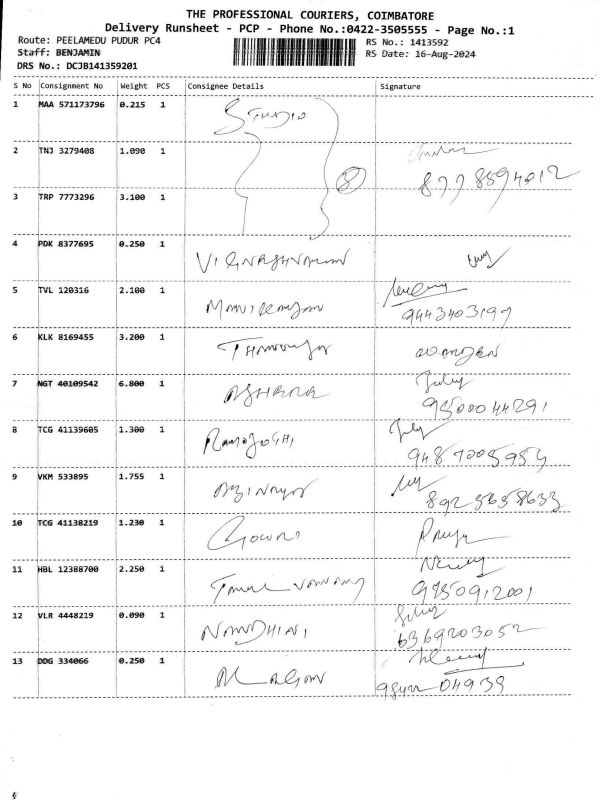 THE PROFESSIONAL COURIERS, COIMBATORE
Delivery Runsheet - PCP - Phone No.:0422-3505555 - Page No.:1
Route: PEELAMEDU PUDUR PC4 RS No.: 1413592
Staff: BENJAMIN RS Date: 16-Aug-2024
DRS No.: DCJB141359201
S No Consignment No Weight PCS Consignee Details Signature
1 MAA 571173796 0.215 1 Studio
2 TNJ 3279408 1.090 1
8778594012
3 TRP 7773296 3.100 1 8
4 PDK 8377695 0.250 1
5 TVL 120316 2.100 1
9443403197
6 KLK 8169455 3.200 1
7 NGT 40109542 6.800 1
9500044291
8 TCG 41139605 1.300 1
9487005954
9 VKM 533895 1.755 1
8925658633
10 TCG 41138219 1.230 1 Gowri Priya
11 HBL 12388700 2.250 1
12 VLR 4448219 0.090 1 NANDHINI
6369203052
13 DDG 334066 0.250 1